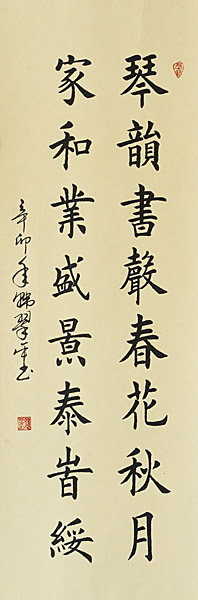 琴韻書聲春花秋月
家和業盛景泰旹綏
辛卯年